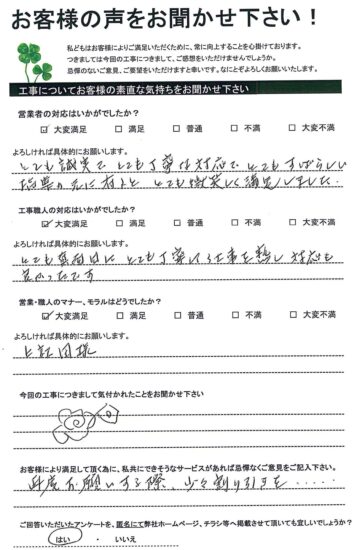 お客様の声をお聞かせ下さい！
私どもはお客様によりご満足いただくために、常に向上することを心掛けております。
つきましては今回の工事につきまして、ご感想をいただけませんでしょうか。
忌憚のないご意見、ご要望をいただけますと幸いです。なにとぞよろしくお願いいたします。
工事についてお客様の素直な気持ちをお聞かせ下さい
営業者の対応はいかがでしたか？
☑ 大変満足 □ 満足 □ 普通 □ 不満 □ 大変不満
よろしければ具体的にお願いします。
とても誠実で とても丁寧な対応で とてもすばらしい
結果の元に とても 満足しました.
工事職人の対応はいかがでしたか？
☑ 大変満足 □ 満足 □ 普通 □ 不満 □ 大変不満
よろしければ具体的にお願いします。
とても真面目に とても丁寧に 仕事を 対応も
良かったです
営業・職人のマナー、モラルはどうでしたか？
☑ 大変満足 □ 満足 □ 普通 □ 不満 □ 大変不満
よろしければ具体的にお願いします。
上記同様
今回の工事につきまして気付かれたことをお聞かせ下さい
お客様により満足して頂く為に、私共にできそうなサービスがあれば忌憚なくご意見をご記入下さい。
再度お願いする際、少々割り引きを・・・・・
ご回答いただいたアンケートを、匿名にて弊社ホームページ、チラシ等へ掲載させて頂いても宜しいでしょうか？
はい ・ いいえ